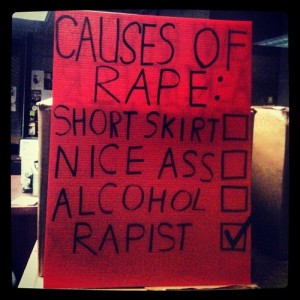 CAUSES OF
RAPE:
SHORT SKIRT
NICE ASS
ALCOHOL
RAPIST